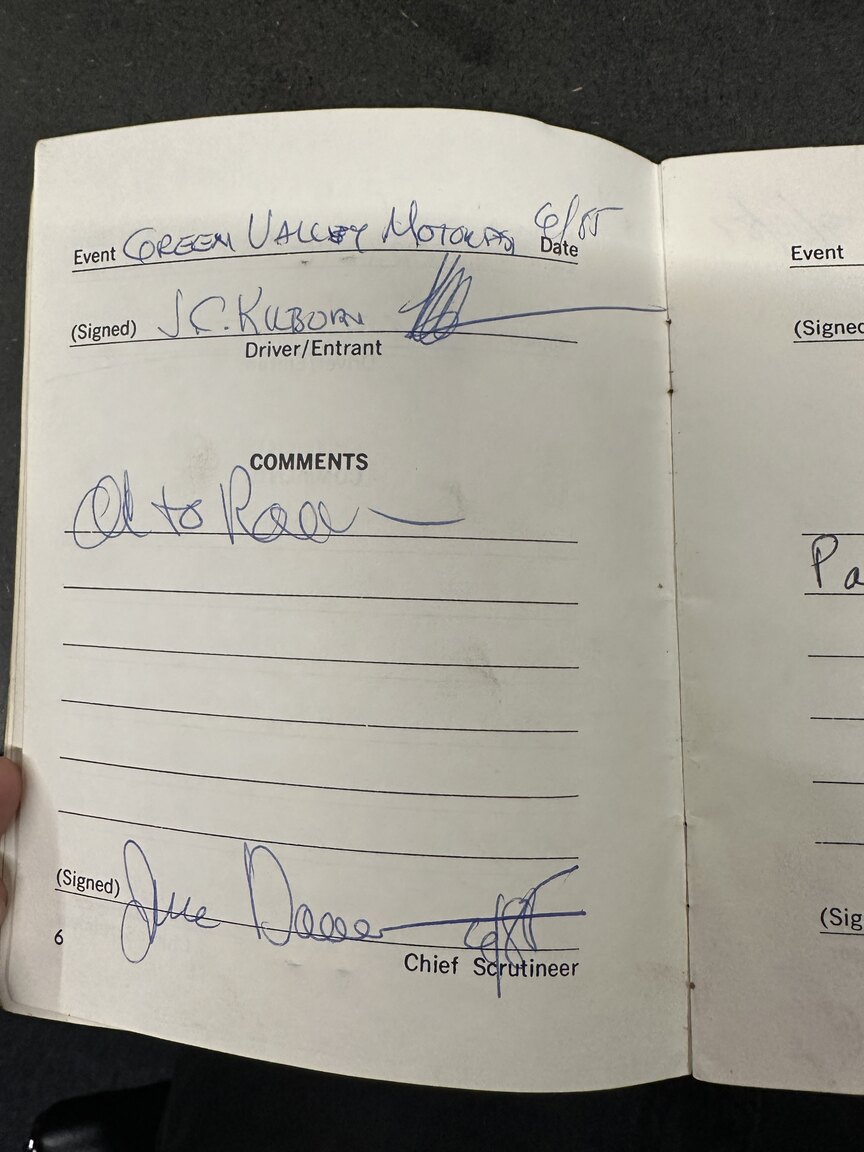 Event GREEN VALLEY 6/85 Date
(Signed) J C. KILBORN
Driver/Entrant
COMMENTS
Ok to Race
(Signed) 6/85
Chief Scrutineer
6
Event
(Signed
Pa
(Sig